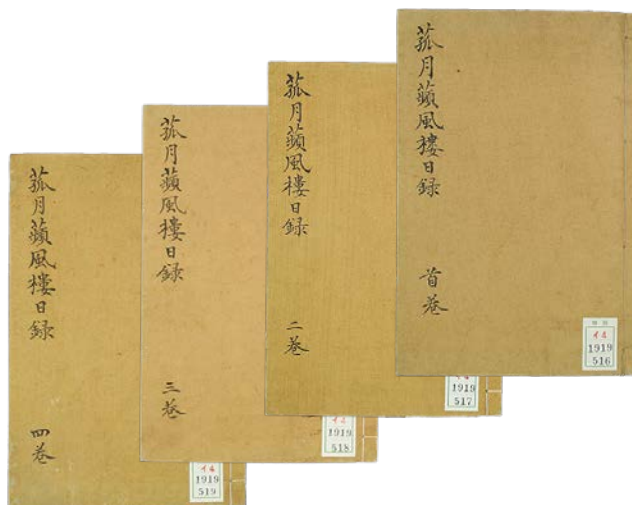 菰月蘋風樓日録
首巻
特別
イ4
1919
516
菰月蘋風樓日録
二巻
イ4
1919
517
菰月蘋風樓日録
三巻
イ4
1919
518
菰月蘋風樓日録
四巻
イ4
1919
519